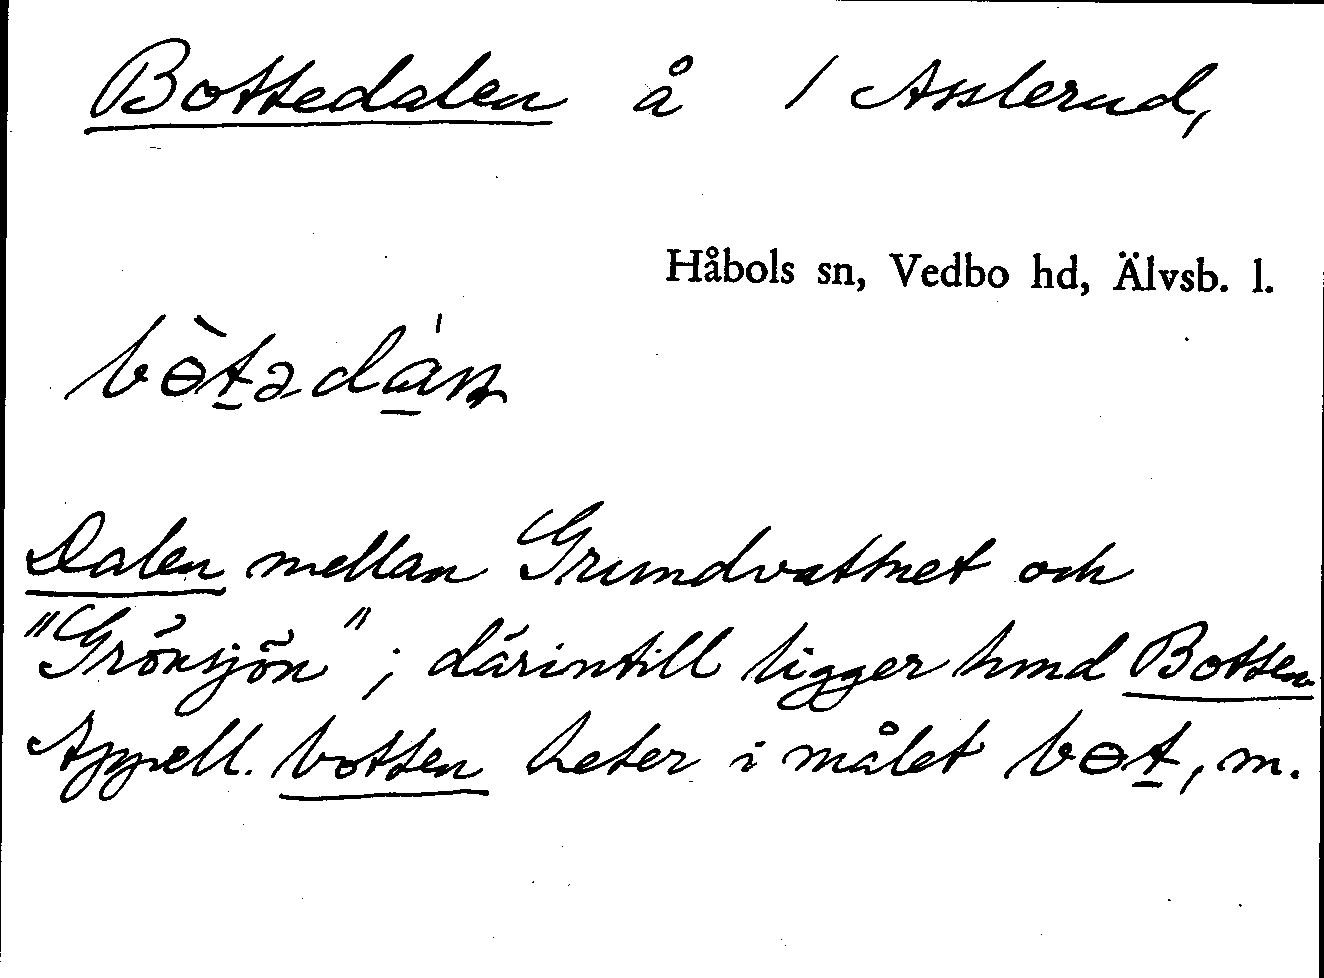 Bottedalen å / Asslerud,
Håbols sn, Vedbo hd, Älvsb. l.
bɵ̀tədán
Dalen mellan Grundvattnet och
"Grönsjön"; därintill ligger hmd Botten
Appell. botten heter i målet bɵt, m.